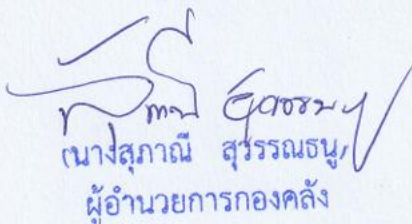 (นางสุภาณี สุวรรณธนู)
ผู้อำนวยการกองคลัง